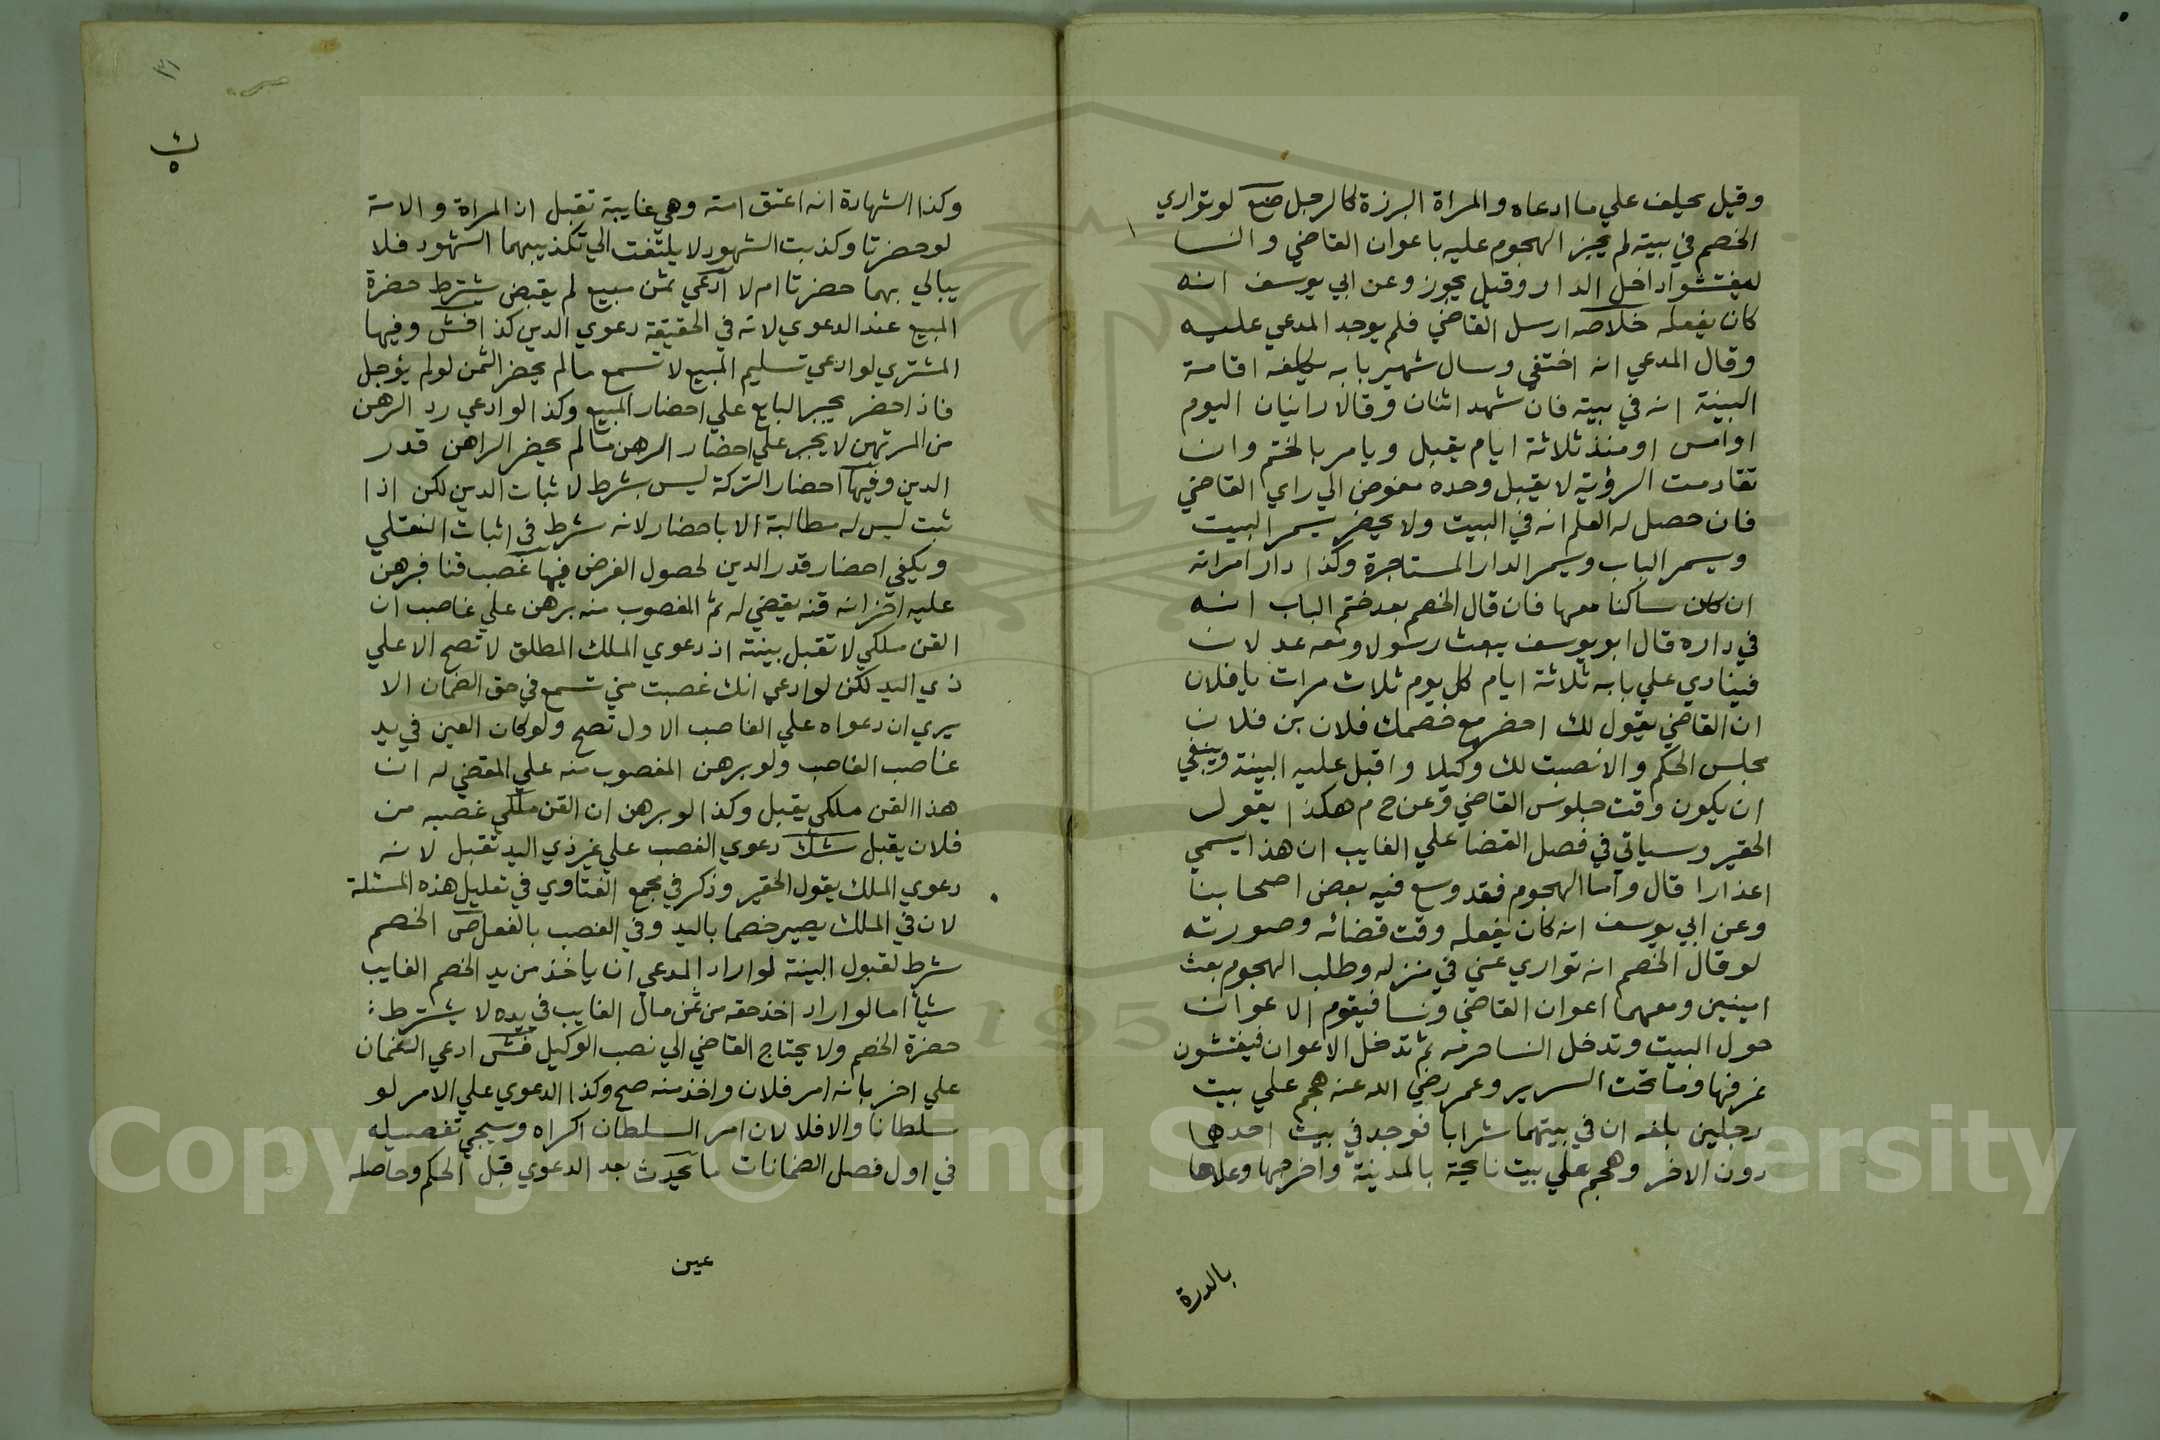 وقيل يحلف علي ما ادعاه والمراة البرزة كالرجل صع لو تواري
الخصم في بيته لم يجز الهجوم عليه باعوان القاضي والنسا
ليفتشوا داخل الدار وقيل يجوز وعن ابي يوسف انه
كان يفعله خلاصه ارسل القاضي فلم يوجد المدعي عليه
وقال المدعي انه اختفي وسال شهير بابه يكلفه اقامة
البينة انه في بيته فان شهد اثنان وقالا رانيان اليوم
او امس او منذ ثلاثة ايام يقبل ويامر بالختم وان
تقادمت الرؤية لا يقبل وحده مفوض الي راي القاضي
فان حصل له العلم انه في البيت ولا يحضر يسمر البيت
ويسمر الباب ويسمر الدار المستاجرة وكذا دار امراته
ان كان ساكنا معها فان قال الخصم بعد ختم الباب انه
في داره قال ابو يوسف يبعث رسولا ومعه عدلان
فينادي علي بابه ثلاثة ايام كل يوم ثلاث مرات يا فلان
ان القاضي يقول لك احضر مع خصمك فلان بن فلان
مجلس الحكم والا نصبت لك وكيلا واقبل عليه البينة وينبغي
ان يكون وقت جلوس القاضي وعن ح م هكذا يقول
الحقير وسياتي في فصل القضا علي الغايب ان هذا يسمي
اعذارا قال واما الهجوم فقد وسع فيه بعض اصحابنا
وعن ابي يوسف انه كان يفعله وقت قضائه وصورته
لو قال الخصم انه تواري عني في منزله وطلب الهجوم بعث
امينين ومعهما اعوان القاضي ونسا فيقوم الاعوان
حول البيت وتدخل النسا حرمه ثم تدخل الاعوان فيفتشون
غرفها وما تحت السرير وعمر رضي الله عنه هجم علي بيت
رجلين بلغه ان في بيتهما شرابا فوجد في بيت احدها
دون الاخر وهجم علي بيت نايحة بالمدينة واخرجها وعلاها
بالدرة
٣١
وكذا الشهادة انه اعتق امته وهي غايبة تقبل ان المراة والامة
لو حضرتا وكذبت الشهود لا يلتفت الي تكذيبهما الشهود فلا
يبالي بهما حضرتا ام لا ادعي ثمن مبيع لم يقبض يشترط حضرة
المبيع عند الدعوي لانه في الحقيقة دعوي الدين كذا افش وفيها
المشتري لو ادعي تسليم المبيع لا تسمع ما لم يحضر الثمن لو لم يؤجل
فاذا حضر يجبر البايع علي احضار المبيع وكذا لو ادعي رد الرهن
من المرتهن لا يجبر علي احضار الرهن ما لم يحضر الراهن قدر
الدين وفيها احضار التركة ليس بشرط لاثبات الدين لكن اذا
ثبت ليس له مطالبة الا باحضار لانه شرط في اثبات النقلي
ويكفي احضار قدر الدين لحصول الغرض فيها غصب قنا فبرهن
عليه اخر انه قنه يقضي له ثم المغصوب منه برهن علي غاصب ان
القن ملكي لا تقبل بينته اذ دعوي الملك المطلق لا تصح الا علي
ذي اليد لكن لو ادعي انك غصبت مني تسمع في حق الضمان الا
يري ان دعواه علي الغاصب الاول تصح ولو كان العين في يد
غاصب الغاصب ولو برهن المغصوب منه علي المقضي له ان
هذا القن ملكي يقبل وكذا لو برهن ان القن ملكي غصبه من
فلان يقبل شك دعوي الغصب علي غير ذي اليد تقبل لانه
دعوي الملك يقول الحقير وذكر في مجمع الفتاوي في تعليل هذه المسئلة
لان في الملك يصير خصما باليد وفي الغصب بالفعل ص الخصم
شرط لقبول البينة لو اراد المدعي ان ياخذ من يد الخصم الغايب
شيأ اما لو اراد اخذ حقه من ثمن مال الغايب في يده لا يشترط
حضرة الخصم ولا يحتاج القاضي الي نصب الوكيل فش ادعي الضمان
علي اخر بانه امر فلان واخذ منه صح وكذا الدعوي علي الامر لو
سلطانا والا فلا لان امر السلطان اكراه وسيجي تفصيله
في اول فصل الضمانات ما يحدث بعد الدعوي قبل الحكم وحاصله
عين
Copyright © King Saud University
195